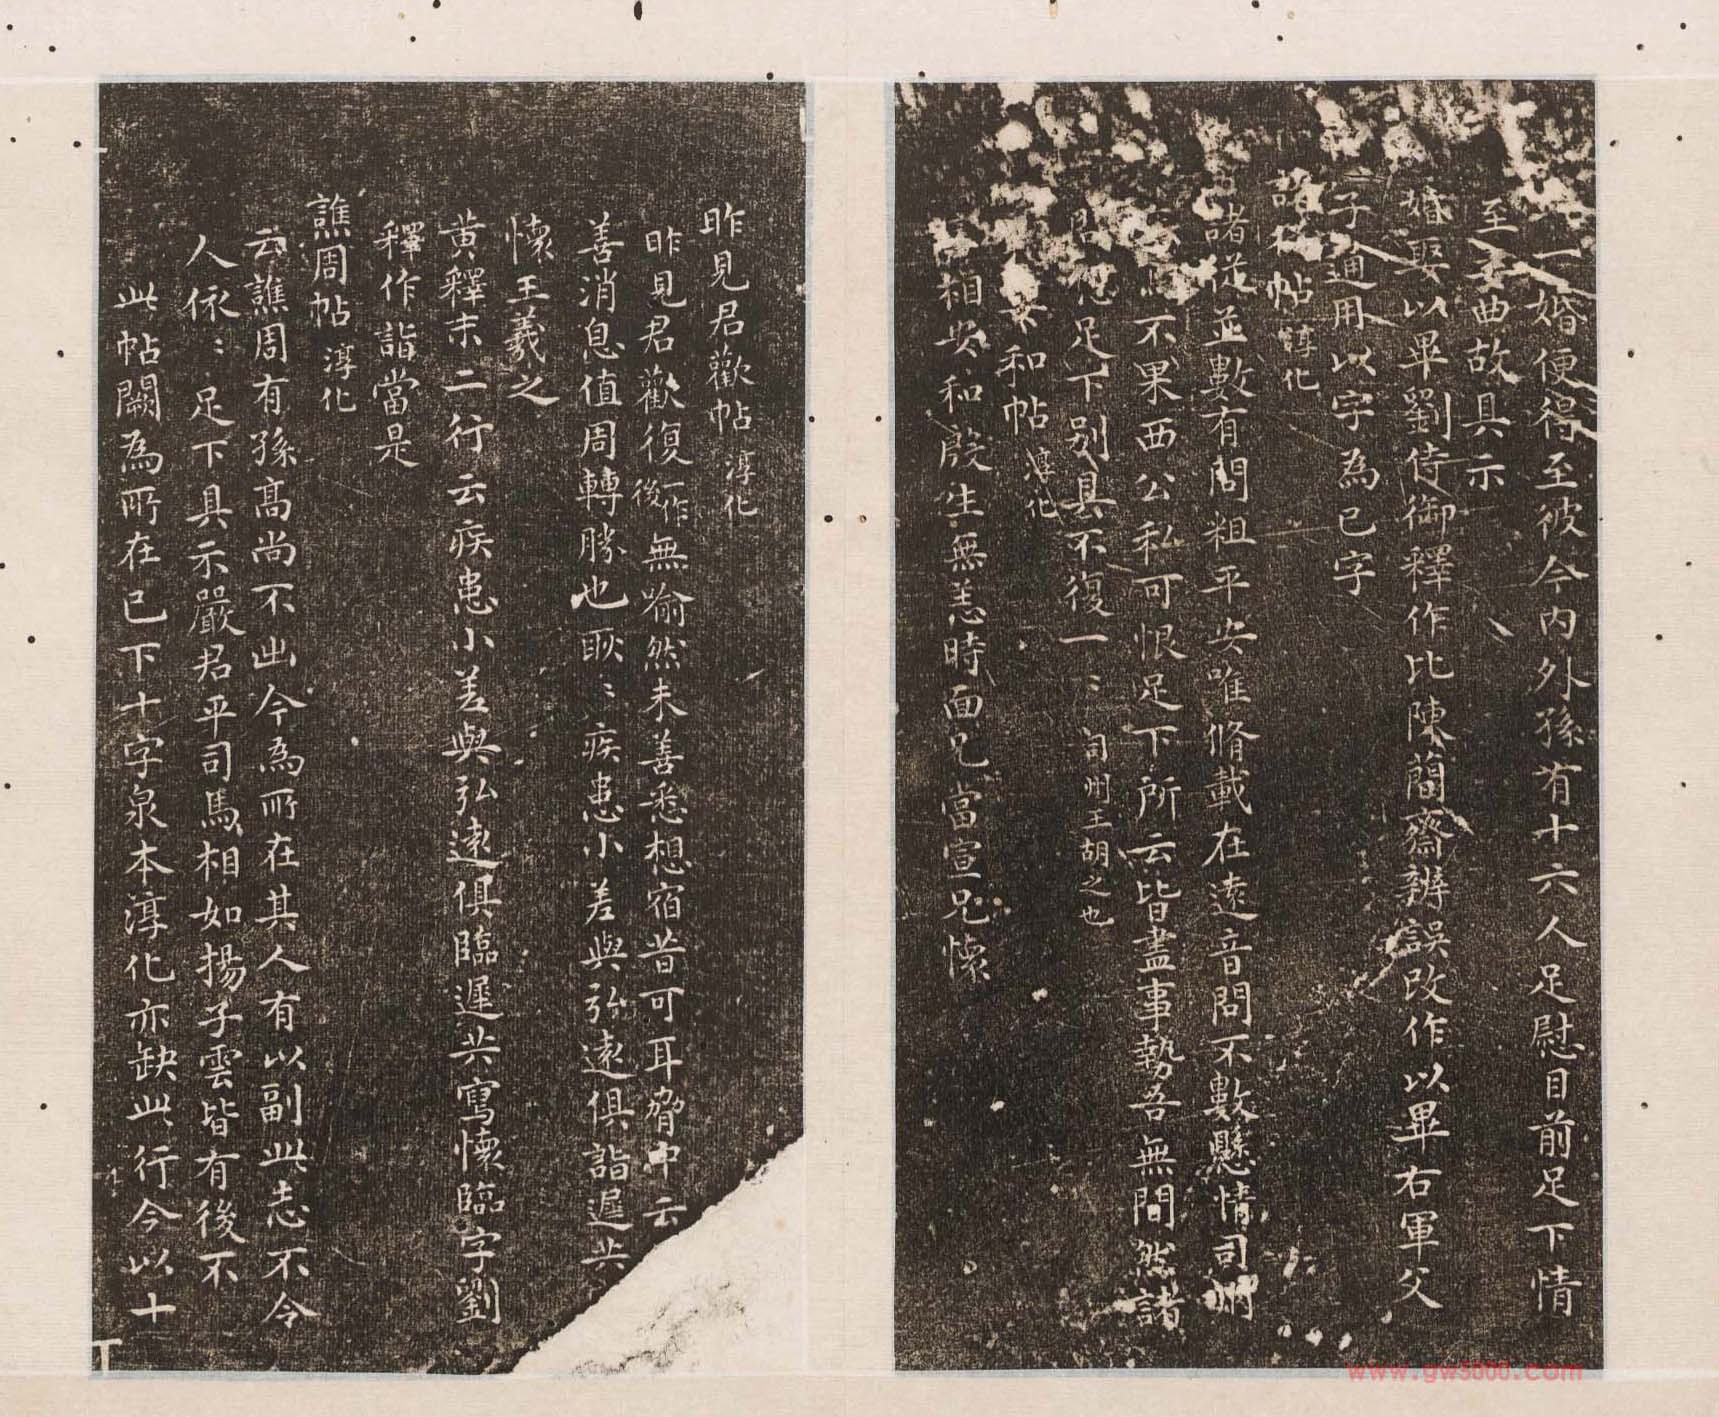 一婚便得至彼今內外孫有十六人足慰目前足下情
至委曲故具示
婚娶以畢劉侍御釋作比陳蕳齋辨誤改作以畢右軍父
子通用以字為已字
諸從帖淳化
諸從並數有問粗平安唯脩載在遠音問不數懸情司州
不果西公私可恨足下所云皆盡事勢吾無間然諸
足下别具不復一﹅司州王胡之也
安和帖淳化
相安和殷生無恙時面兄當宣兄懷
昨見君歡帖淳化
昨見君歡復一作後無喻然未善悉想宿昔可耳脅中云
善消息值周轉勝也耿﹅疾患小差與弘遠俱詣遲共
懷王羲之
黃釋末二行云疾患小差與弘遠俱臨遲共寫懷臨字劉
釋作詣當是
譙周帖淳化
云譙周有孫高尚不出今為所在其人有以副此志不令
人依﹅足下具示嚴君平司馬相如揚子雲皆有後不
此帖闕為所在已下十字泉本淳化亦缺此行今以十